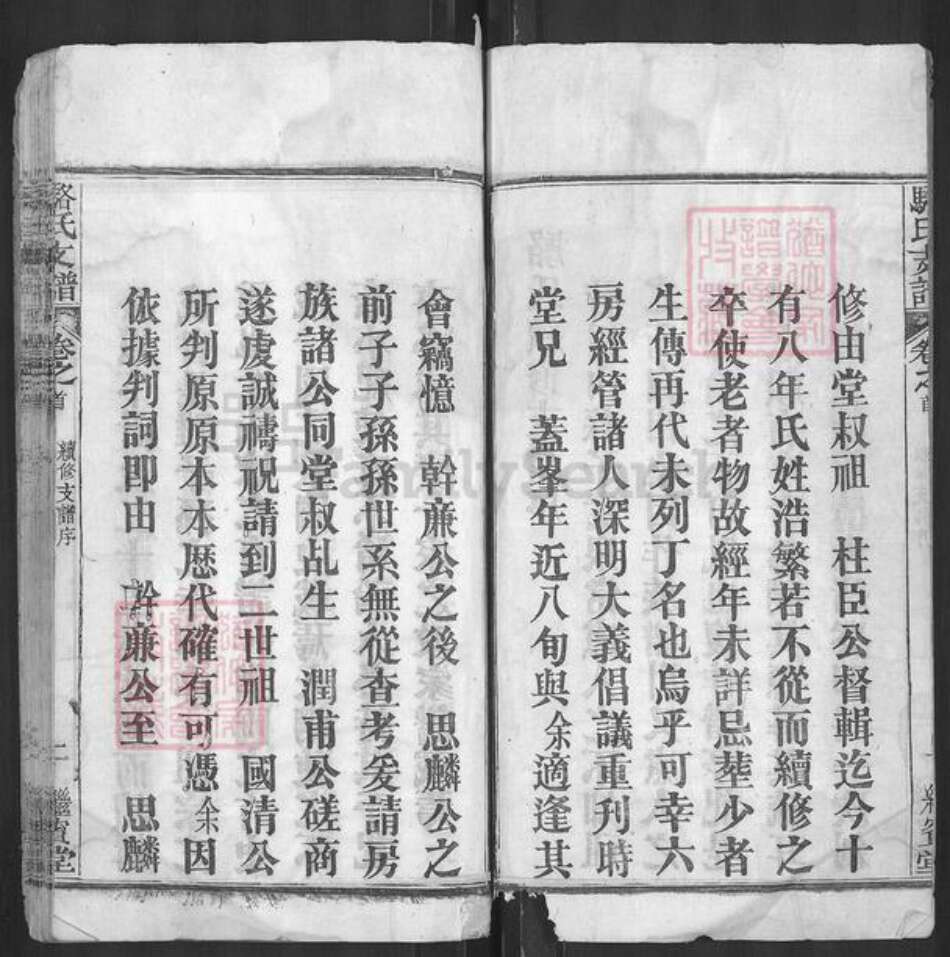 駱氏支譜
卷之首
修由堂叔祖 柱臣公督輯迄今十
有八年氏姓浩繁若不從而續修之
卒使老者物故經年未詳忌塟少者
生傳再代未列丁名也烏乎可幸六
房經管諸人深明大義倡議重刋時
堂兄 蓋峯年近八旬與余適逢其
會竊憶 幹亷公之後 思麟公之
前子子孫孫世系無從查考爰請房
族諸公同堂叔乩生 潤甫公磋商
遂虔誠禱祝請到二世祖 國清公
所判原原本本歴代確有可憑余因
依據判詞即由 幹亷公至 思麟
駱氏支譜
卷之首
續修支譜序
二
繼賓堂
FamilySearch